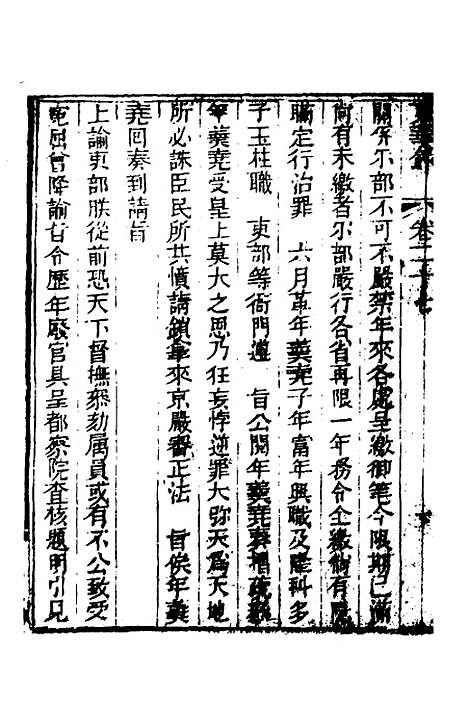 關係尓部不可不嚴禁年來各處呈繳御筆今限期已滿
尙有未繳者尓部嚴行各省再限一年務令全繳倘有隱
瞞定行治罪　六月革年羹堯子年富年興職及隆科多
子玉柱職　吏部等衙門遵　旨公閱年羹堯褻槽疏縣
年羹堯受皇上莫大之恩乃狂妄悖逆罪大弥天為天地
所必誅臣民所共憤請鎖拿來京嚴審正法　旨俟年羹
堯回奏到請旨
上諭吏部朕從前恐天下督撫叅劾属員或有不公致受
寃屈曾降諭旨令歷年廢官具呈都察院查核題明引見
卷二